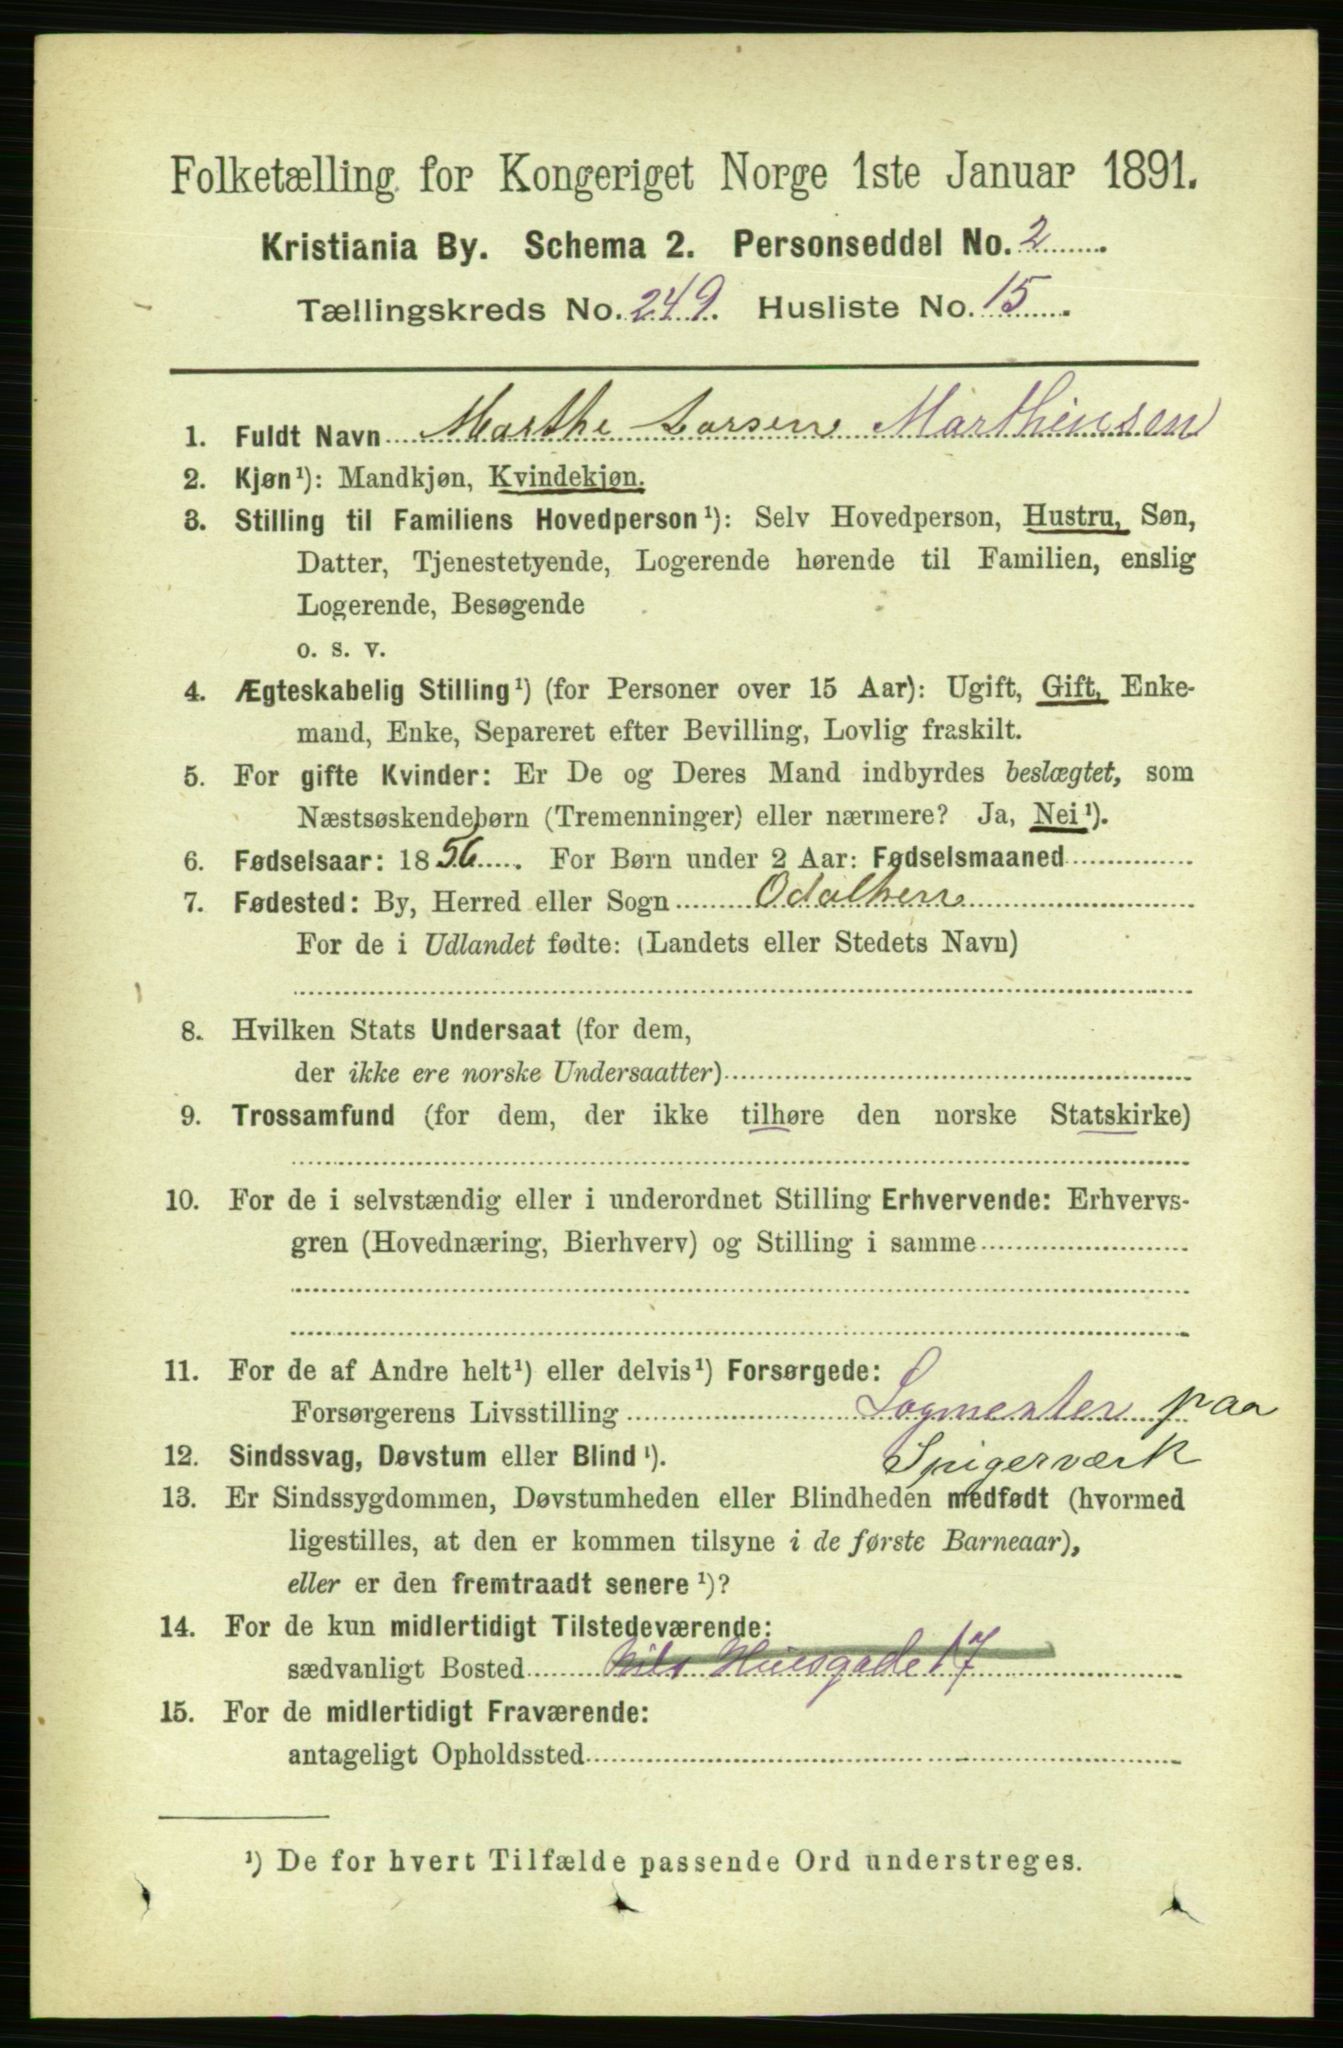 Folketælling for Kongeriget Norge 1ste Januar 1891.
Kristiania By. Schema 2. Personseddel No. 2
Tællingskreds No. 249. Husliste No. 15
1. Fuldt Navn Marthe Larsen Marthinsen
2. Kjøn¹): Mandkjøn, Kvindekjøn.
3. Stilling til Familiens Hovedperson¹): Selv Hovedperson, Hustru, Søn,
Datter, Tjenestetyende, Logerende hørende til Familien, enslig
Logerende, Besøgende
o. s. v.
4. Ægteskabelig Stilling¹) (for Personer over 15 Aar): Ugift, Gift, Enke-
mand, Enke, Separeret efter Bevilling, Lovlig fraskilt.
5. For gifte Kvinder: Er De og Deres Mand indbyrdes beslægtet, som
Næstsøskendebørn (Tremenninger) eller nærmere? Ja, Nei¹).
6. Fødselsaar: 1856. For Børn under 2 Aar: Fødselsmaaned
7. Fødested: By, Herred eller Sogn Odalhen
For de i Udlandet fødte: (Landets eller Stedets Navn)
8. Hvilken Stats Undersaat (for dem,
der ikke ere norske Undersaatter)
9. Trossamfund (for dem, der ikke tilhøre den norske Statskirke)
10. For de i selvstændig eller i underordnet Stilling Erhvervende: Erhvervs-
gren (Hovednæring, Bierhverv) og Stilling i samme
11. For de af Andre helt¹) eller delvis¹) Forsørgede:
Forsørgerens Livsstilling Sogmester paa
12. Sindssvag, Døvstum eller Blind¹). Spigerværk
13. Er Sindssygdommen, Døvstumheden eller Blindheden medfødt (hvormed
ligestilles, at den er kommen tilsyne i de første Barneaar),
eller er den fremtraadt senere¹)?
14. For de kun midlertidigt Tilstedeværende:
sædvanligt Bosted Nils Huusgade 17
15. For de midlertidigt Fraværende:
antageligt Opholdssted
¹) De for hvert Tilfælde passende Ord understreges.